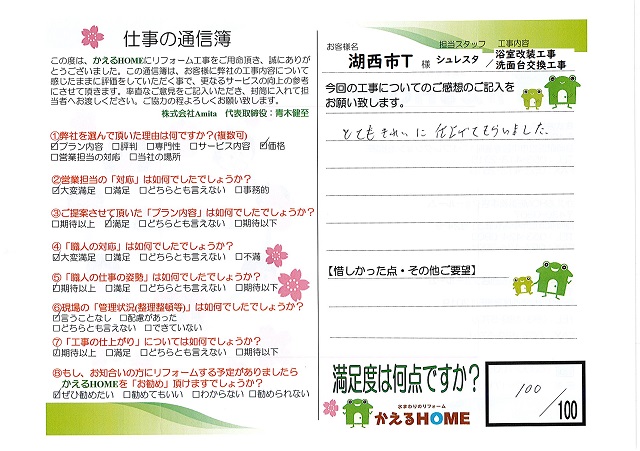 仕事の通信簿
この度は、かえるHOMEにリフォーム工事をご用命頂き、誠にありが
とうございました。この通信簿は、お客様に弊社の工事内容について
感じたままに評価をしていただく事で、更なるサービスの向上の参考
にさせて頂きます。率直なご意見をご記入いただき、封筒に入れて担
当者へお渡しください。ご協力の程よろしくお願い致します。
株式会社Amita 代表取締役：青木健至
①弊社を選んで頂いた理由は何ですか？(複数可)
☑プラン内容 □評判 □専門性 □サービス内容 ☑価格
□営業担当の対応 □当社の場所
②営業担当の「対応」は如何でしたでしょうか？
☑大変満足 □満足 □どちらとも言えない □事務的
③ご提案させて頂いた「プラン内容」は如何でしたでしょうか？
□期待以上 ☑満足 □どちらとも言えない □期待以下
④「職人の対応」は如何でしたでしょうか？
☑大変満足 □満足 □どちらとも言えない □不満
⑤「職人の仕事の姿勢」は如何でしたでしょうか？
☑期待以上 □満足 □どちらとも言えない □期待以下
⑥現場の「管理状況(整理整頓等)」は如何でしたでしょうか？
☑言うことなし □配慮があった
□どちらとも言えない □できていない
⑦「工事の仕上がり」については如何でしたでしょうか？
☑期待以上 □満足 □どちらとも言えない □期待以下
⑧もし、お知合いの方にリフォームする予定がありましたら
かえるHOMEを「お勧め」頂けますでしょうか？
☑ぜひ勧めたい □勧めてもいい □わからない □勧められない
お客様名 担当スタッフ 工事内容
湖西市T 様 シュレスタ 浴室改装工事
洗面台交換工事
今回の工事についてのご感想のご記入を
お願い致します。
とてもきれいに仕上げてもらいました。
【惜しかった点・その他ご要望】
満足度は何点ですか？
100/100
水まわりのリフォーム
かえるHOME